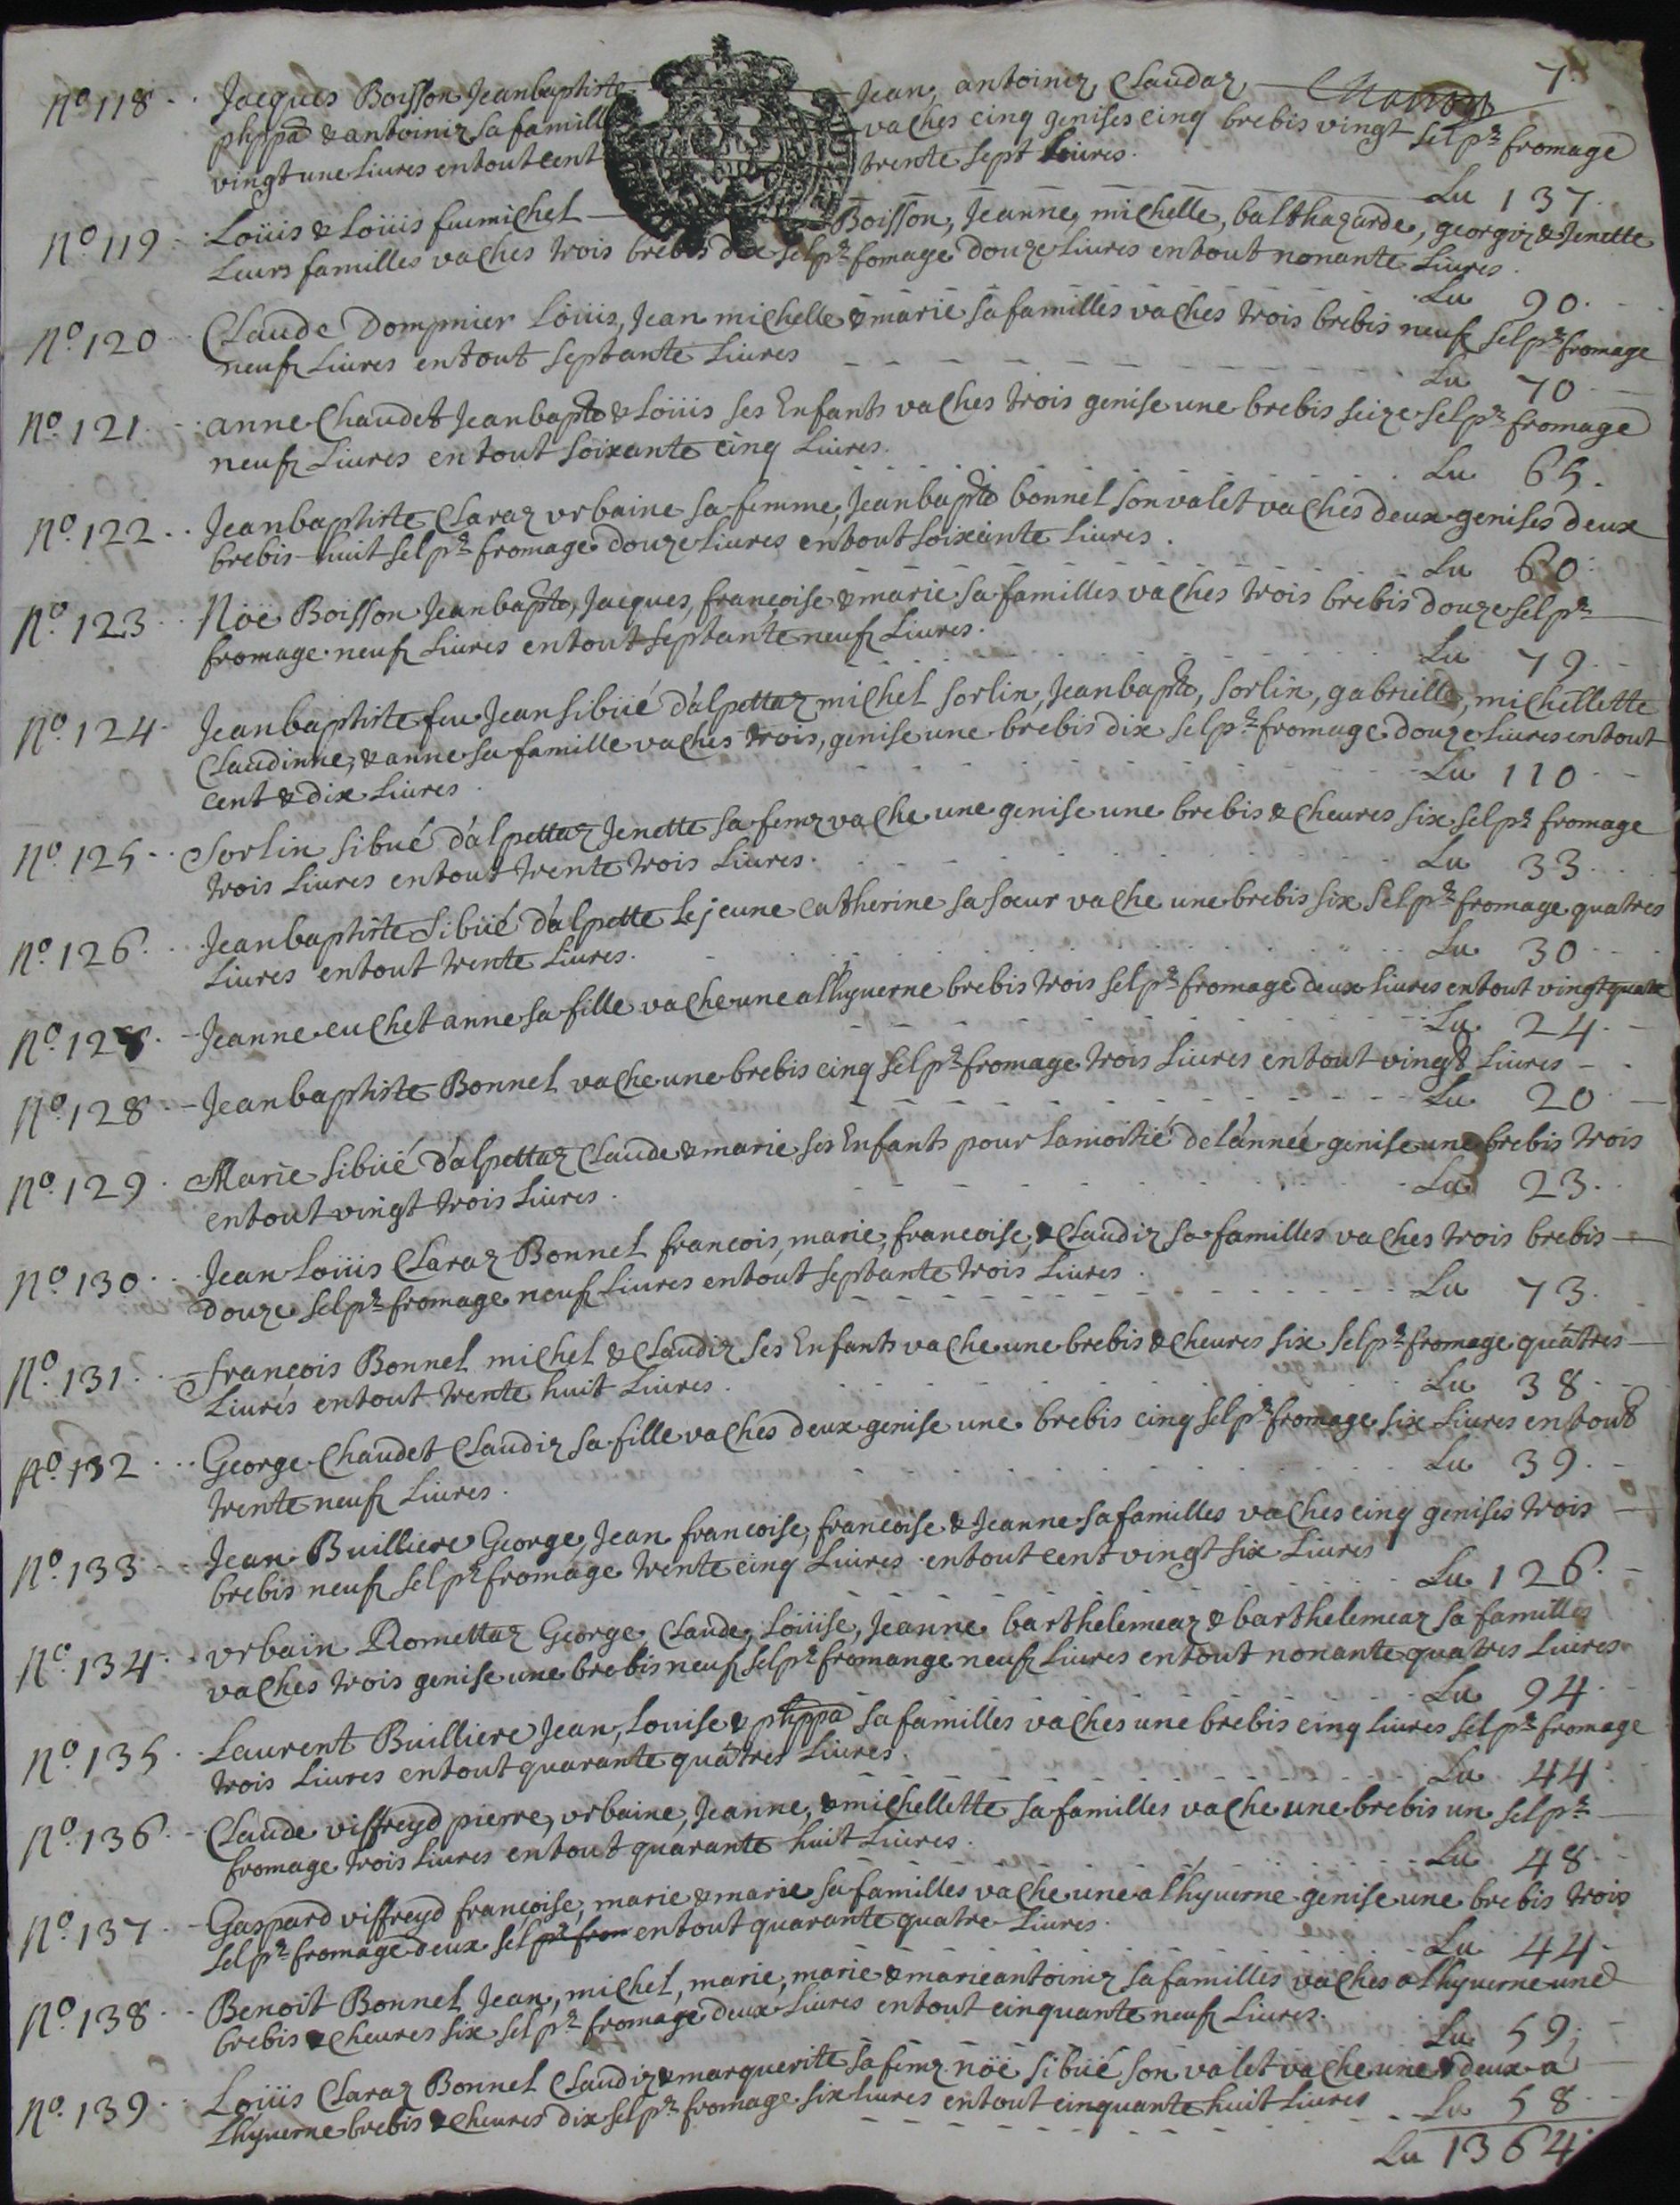 7
N.o 118 Jacques Boisson Jeanbaptiste Jean, antoiniz, Claudaz,
phppa & antoiniz sa famille vaches cinq genises cinq brebis vingt sel pr fromage
vingt une Livres entout cent trente sept Livres.
Lu 137.
N.o 119 Loüis & Loüis fumichel Boisson, Jeanne, michelle, balthazarde, georgiz & Jenette
Leurs familles vaches trois brebis dix sel pr fomage douze Livres entout nonante Livres.
Lu 90.
N.o 120 Claude Dompnier Loüis, Jean michelle & marie sa familles vaches trois brebis neuf sel pr fromage
neuf Livres entout septante Livres
Lu 70
N.o 121 anne Chaudet Jeanbapte & Loüis ses Enfants vaches trois genise une brebis seize sel pr fromage
neuf Livres entout soixante cinq Livres.
Lu 65.
N.o 122 Jeanbaptiste Claraz vrbaine sa femme, Jeanbapte bonnel son valet vaches deux genises deux
brebis huit sel pr fromage douze Livres entout soixante Livres.
Lu 60
N.o 123 Noë Boisson Jeanbapte, Jacques, francoise & marie sa familles vaches trois brebis douze sel pr
fromage neuf Livres entout septante neuf Livres.
Lu 79.
N.o 124 Jeanbaptiste feu Jean sibüé dalpettaz michel sorlin, Jeanbapte, sorlin, gabrielle, michellette
Claudinne, & anne sa famille vaches trois, genise une brebis dix sel pr fromage douze Livres entout
cent & dix Livres
Lu 110
N.o 125 Sorlin sibué dalpettaz Jenette sa femz vache une genise une brebis & cheures six sel pr fromage
trois Livres entout trente trois Livres.
Lu 33
N.o 126 Jeanbaptiste sibüé dalpette Le jeune Catherine sa soeur vache une brebis six sel pr fromage quatres
Livres entout trente Livres.
Lu 30
N.o 127 Jeanne euchet anne sa fille vache une alhyuerne brebis trois sel pr fromage deux Livres entout vingtquatre
Lu 24.
N.o 128 Jeanbaptiste Bonnel vache une brebis cinq sel pr fromage trois Livres entout vingt Livres
Lu 20
N.o 129 Marie sibüé dalpettaz Claude & marie ses Enfants pour lamoitié delánnée genise une brebis trois
entout vingt trois Livres.
Lu 23.
N.o 130 Jean Loüis Claraz Bonnel francois, marie, francoise, & Claudiz sa familles vaches trois brebis
douze sel pr fromage neuf Livres entout septante trois Livres.
Lu 73.
N.o 131 francois Bonnel michel & Claudiz ses Enfants vache une brebis & cheures six sel pr fromage quatres
Livres entout trente huit Livres.
Lu 38
N.o 132 George Chaudet Claudiz sa fille vaches deux genise une brebis cinq sel pr fromage six Livres entout
trente neuf Livres.
Lu 39.
N.o 133 Jean Builliere George, Jean francoise, francoise & Jeanne sa familles vaches cinq genises trois
brebis neuf sel pr fromage trente cinq Livres entout cent vingt six Livres
Lu 126.
N.o 134 vrbain Romettaz George Claude, Loüise, Jeanne barthelemeaz & barthelemeaz sa familles
vaches trois genise une brebis neuf sel pr fromange neuf Livres entout nonante quatres Livres
Lu 94
N.o 135 Laurent Builliere Jean, Louise & phppa sa familles vaches une brebis cinq Livres sel pr fromage
trois Livres entout quarante quatres Livres.
Lu 44.
N.o 136 Claude viffreyd pierre, vrbaine, Jeanne, & michellette sa familles vache une brebis un sel pr
fromage trois Livres entout quarante huit Livres.
Lu 48
N.o 137 Gaspard viffreyd francoise, marie & marie sa familles vache une alhyuerne genise une brebis trois
sel pr fromage deux sel pr from entout quarante quatre Livres.
Lu 44.
N.o 138 Benoit Bonnel Jean, michel, marie, marie & marieantoiniz sa familles vaches alhyuerne une
brebis & cheures six sel pr fromage deux Livres entout cinquante neuf Livres.
Lu 59
N.o 139 Loüis Claraz Bonnel Claudiz & marguerite sa femz noë sibüé son valet vache une & deux a
Lhyuerne brebis & cheures dix sel pr fromage six Livres entout cinquante huit Livres
Lu 58
Lu 1364